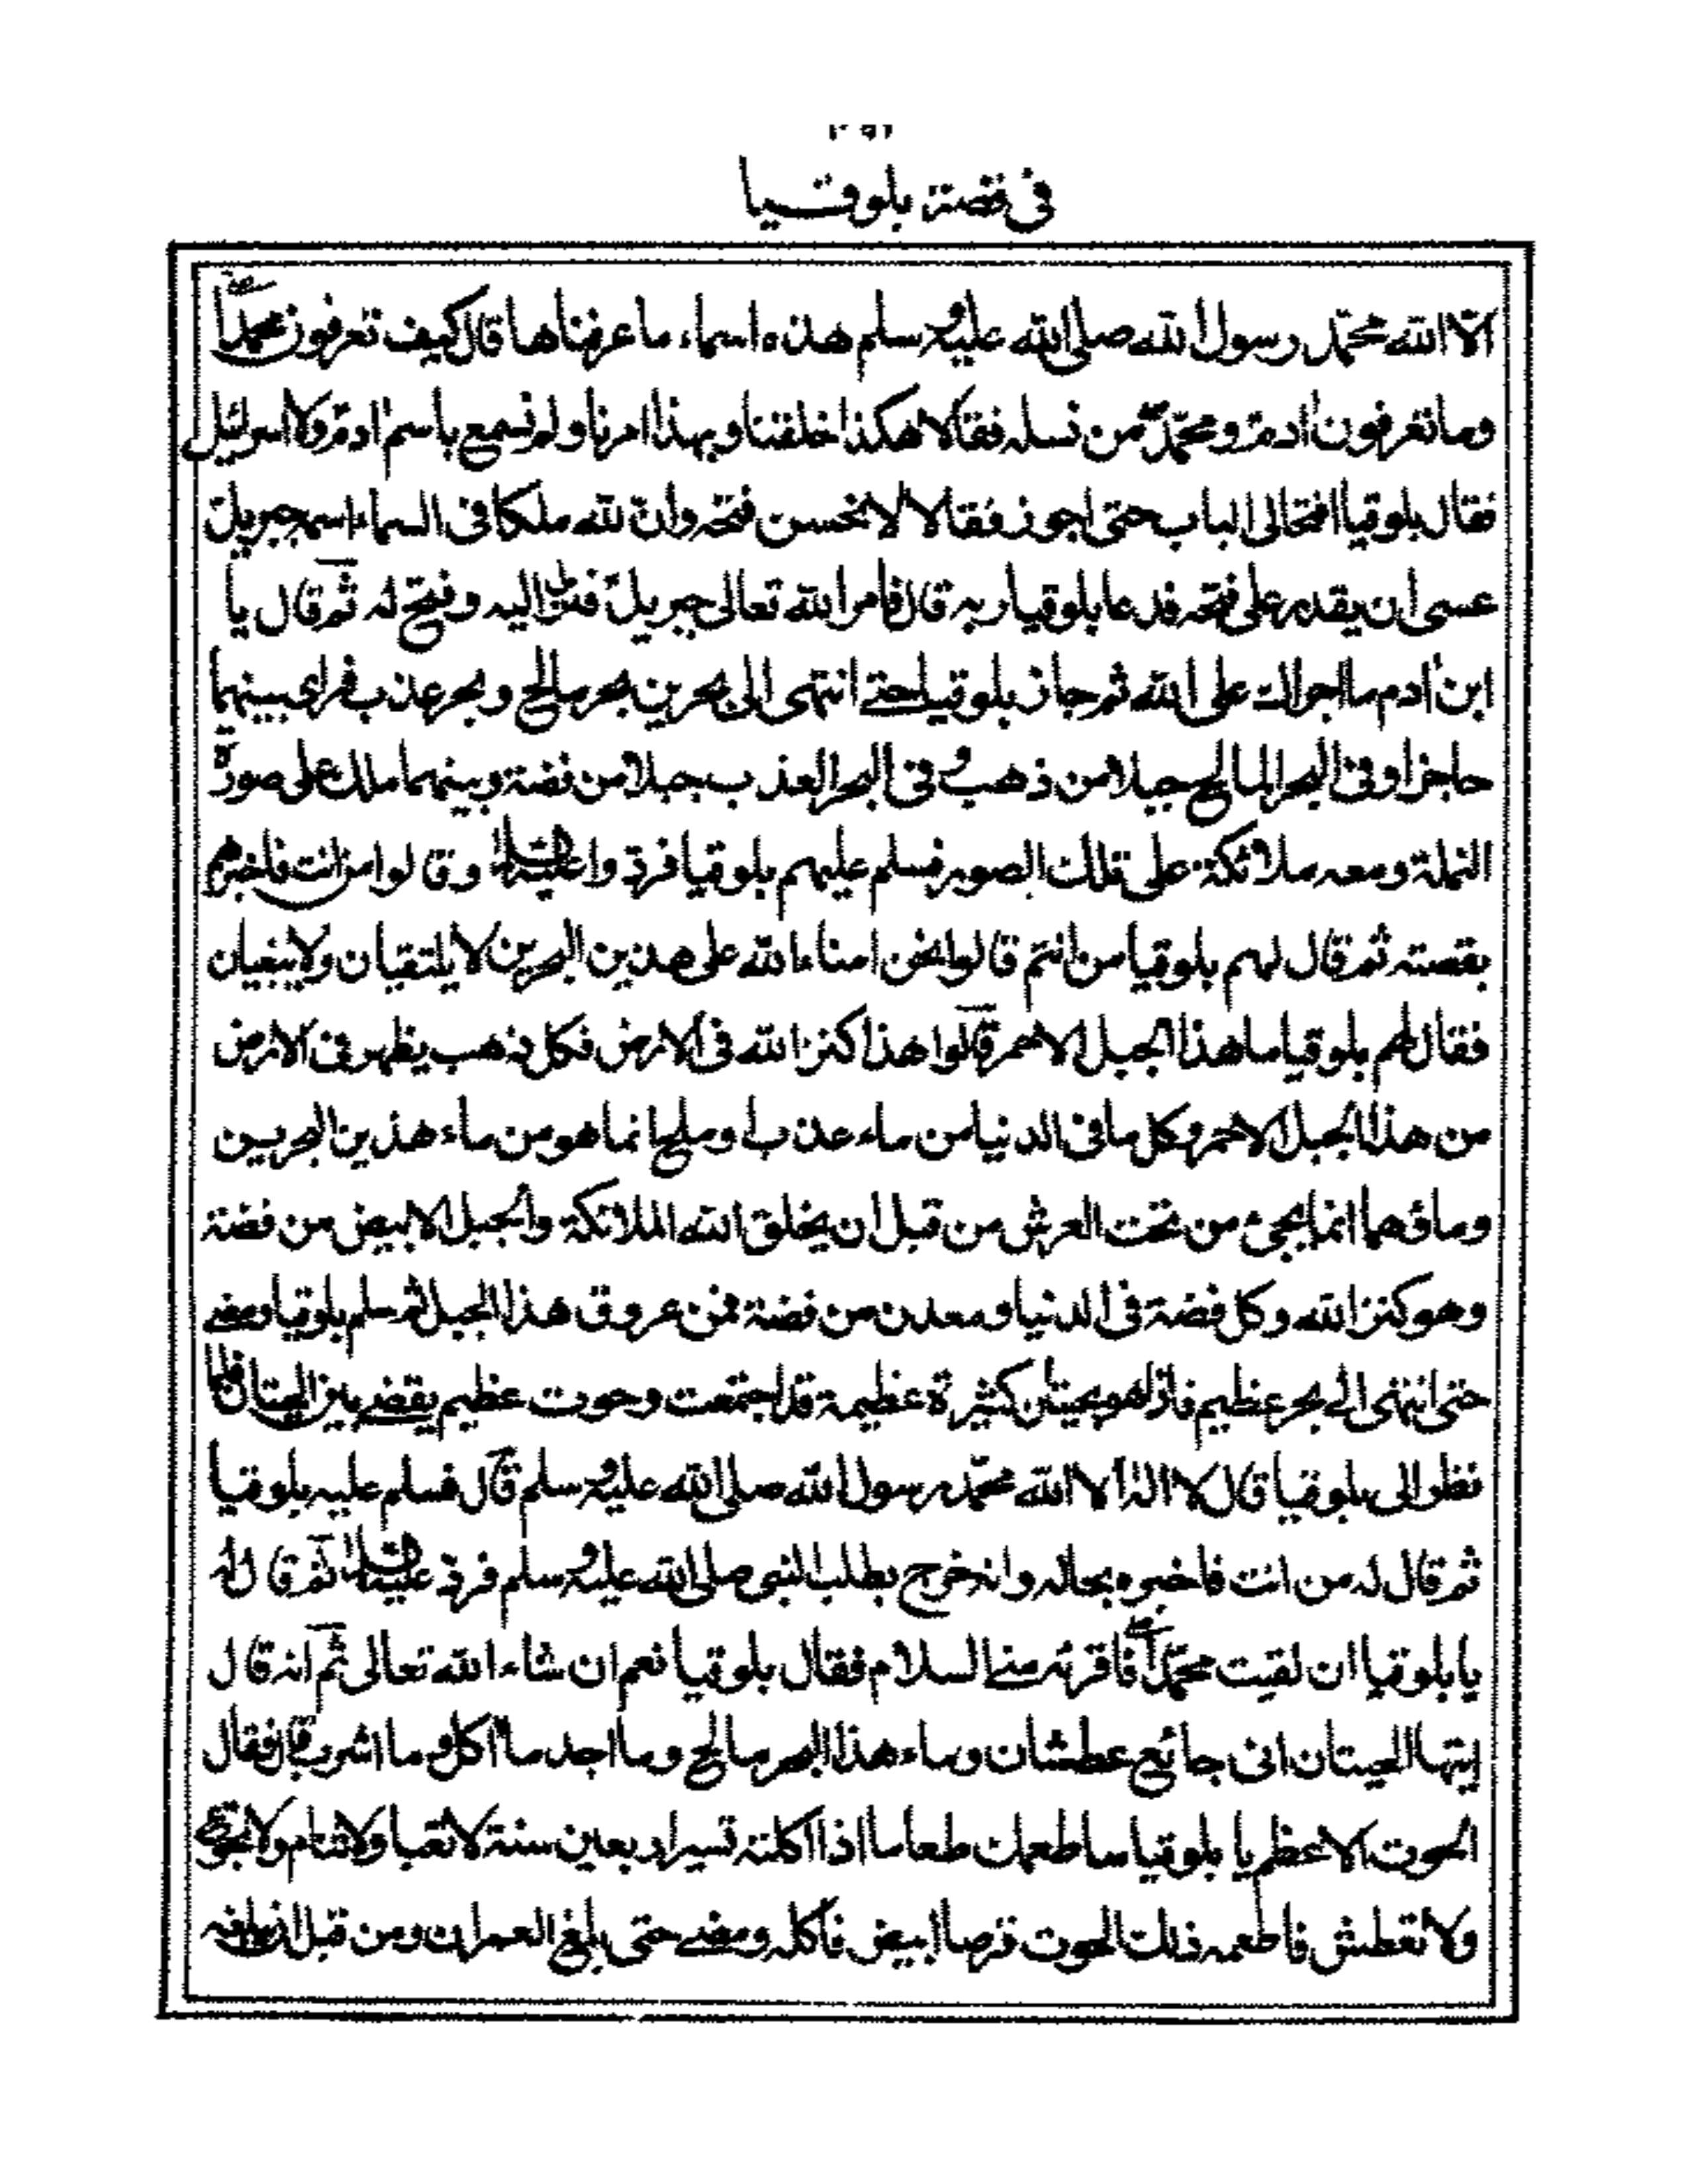 فى قصة بلوقيا
الا الله محمّد رسول الله صلى الله عليه وسلم هذه اسماء ما عرفناها قال كيف تعرفون محمدًا
وما تعرفون ادم ومحمّد من نسله فقالا هكذا خلقنا وبهذا امرنا ولم نسمع باسم ادم ولا اسرائيل
فقال بلوقيا افتحالى الباب حتى اجوز فقالا لا نحسن فتحه وانّ لله ملكا فى السماء اسمه جبريل
عسى ان يقدر على فتحه فدعا بلوقيا ربه قال فامر الله تعالى جبريل فنزل اليه وفتح له ثم قال يا
ابن ادم ما اجراك على الله ثم جاز بلوقيا حتے انتهى الى بحرين بحر مالح وبحر عذب فراى بينهما
حاجزا وفى البحر المالح جبلا من ذهب وفى البحر العذب جبلا من فضة وبينهما ملك على صورة
النملة ومعه ملائكة على تلك الصوره فسلم عليهم بلوقيا فردوا عليه السلام وقالوا من انت فاخبرهم
بقصته ثم قال لهم بلوقيا من انتم قالوا نحن امناء الله على هذين البحرين لا يلتقيان ولا يبغيان
فقال لهم بلوقيا ما هذا الجبل الاحمر قالوا هذا كنز الله فى الارض فكل ذهب يظهر فى الارض
من هذا الجبل الاحمر وكل ما فى الدنيا من ماء عذب او ملح انما هو من ماء هذين البحرين
وماؤهما انما يجئ من تحت العرش من قبل ان يخلق الله الملائكة والجبل الابيض من فضة
وهو كنز الله وكل فضة فى الدنيا ومعدن من فضة فمن عروق هذا الجبل ثم سلم بلوقيا ومضے
حتى انتهى الى بحر عظيم فاذا هو بحيتان كثيرة عظيمة قد اجتمعت وحوت عظيم يقضے بين الحيتان فلما
نظر الى بلوقيا قال لا اله الا الله محمّد رسول الله صلى الله عليه وسلم قال فسلم عليه بلوقيا
ثم قال له من انت فاخبره بحاله وانه خرج يطلب النبى صلى الله عليه وسلم فرد عليه السلام ثم قال له
يا بلوقيا ان لقيت محمّدًا فاقرئه منے السلام فقال بلوقيا نعم ان شاء الله تعالى ثم انه قال
ايتها الحيتان انى جائع عطشان وماء هذا البحر مالح وما اجد ما اكل وما اشرب قال فقال
الحوت الاعظم يا بلوقيا ساطعمك طعاما اذا اكلته تسير اربعين سنة لا تعبا ولا تنام ولا تجوع
ولا تعطش فاطعمه ذلك الحوت قرصا ابيض فاكله ومضے حتى بلغ العمران ومن قبل